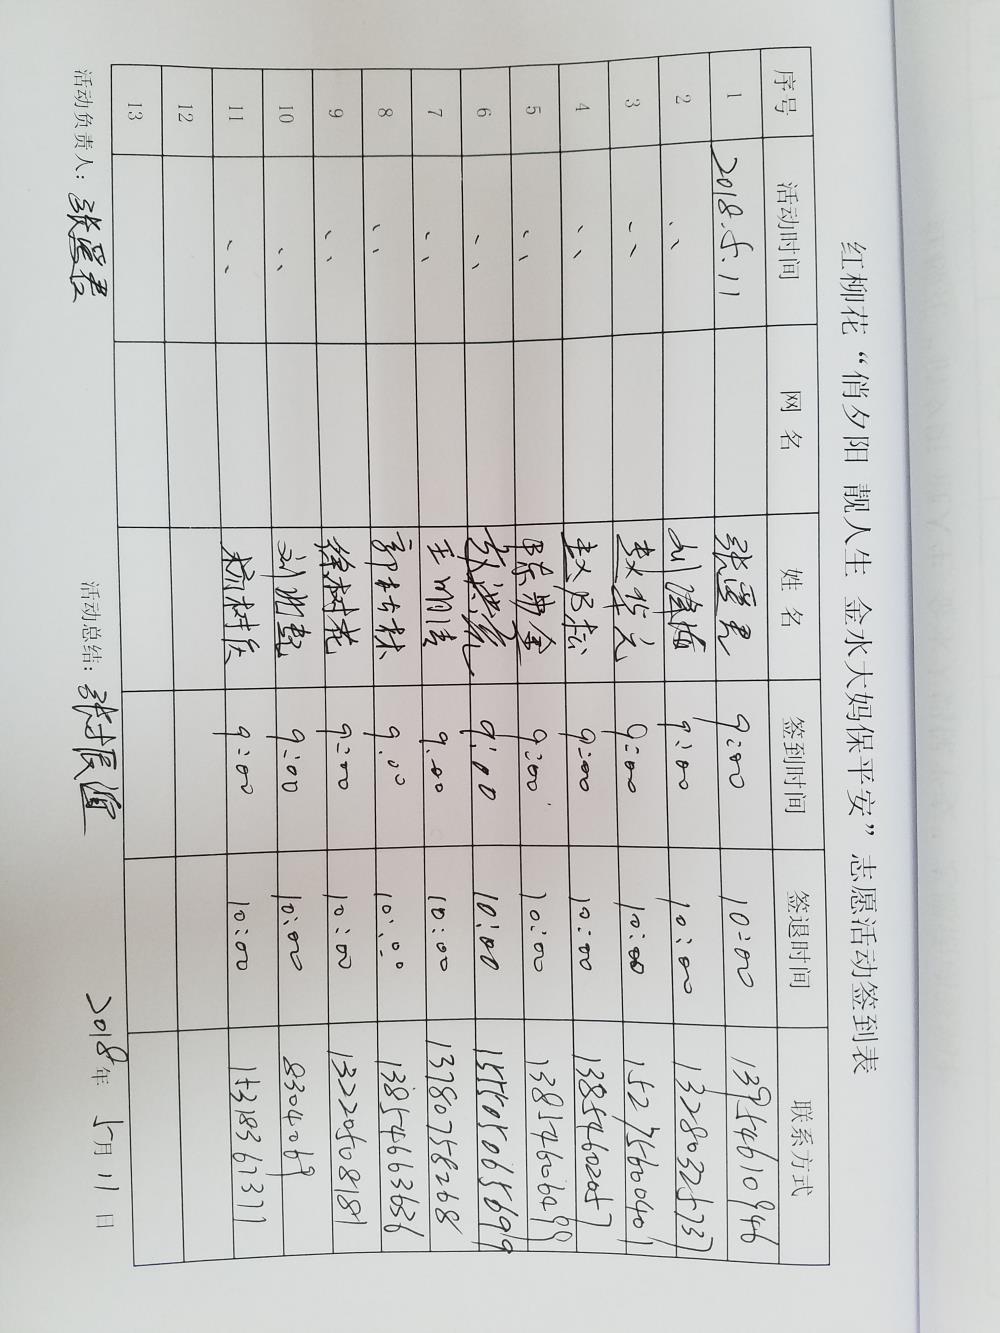 红柳花“俏夕阳 靓人生 金水大妈保平安”志愿活动签到表
序号 活动时间 网名 姓名 签到时间 签退时间 联系方式
1 2018.5.11 9:00 10:00 13954610946
2 〃 9:00 10:00 13280325737
3 〃 李华元 9:00 10:00 15275600401
4 〃 9:00 10:00 13854602057
5 〃 9:00 10:00 13854606499
6 〃 9:00 10:00 15550506569
7 〃 王明清 9.00 10:00 13780758268
8 〃 郭树林 9.00 10:00 13854663636
9 〃 徐树花 9:00 10:00 13220508181
10 〃 9:00 10:00 8304069
11 〃 9:00 10:00 15318361371
12
13
活动负责人: 活动总结: 2018年 5月 11日